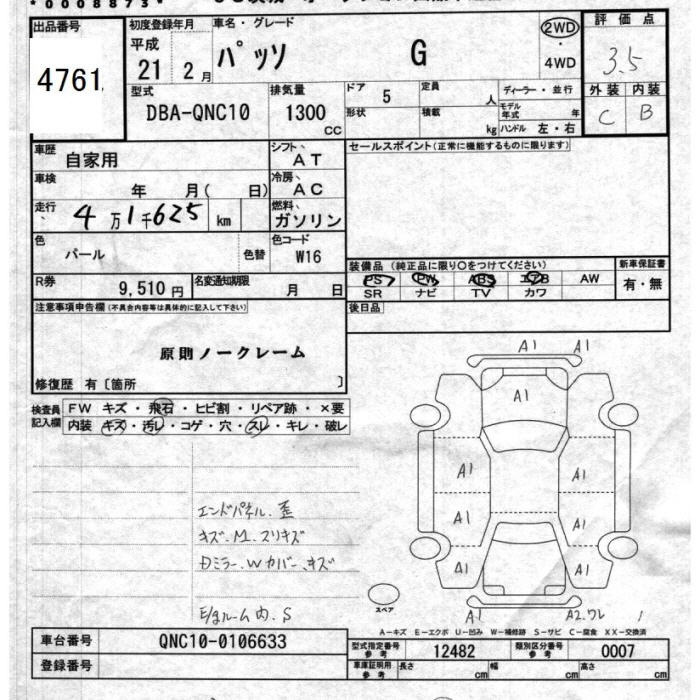 *0008873*
出品番号
4761
初度登録年月
平成
21 2月
車名・グレード
パッソ G
2WD
・
4WD
評価点
3.5
型式
DBA-QNC10
排気量
1300
CC
ドア 5
定員 人
ディーラー・並行
形状
積載 kg
モデル年式 年
ハンドル 左・右
外装 内装
C B
車歴 自家用
シフト AT
セールスポイント(正常に機能するものに限ります)
車検 年 月( 日)
冷房 AC
走行 4万1千625 km
燃料 ガソリン
色 パール 色替
色コード W16
R券 9,510円
名変通知期限 月 日
装備品(純正品に限り○をつけてください)
新車保証書
PS PW ABS エアB AW
SR ナビ TV カワ
有・無
注意事項申告欄(不具合内容等は具体的に記入して下さい)
後日品
原則ノークレーム
修復歴 有〔箇所 〕
検査員記入欄
FW キズ・飛石・ヒビ割・リペア跡・×要
内装 キズ・汚レ・コゲ・穴・スレ・キレ・破レ
A1 A1
A1
A1 A1
A1 A1
A1 A1
A1 A2.ワレ
エンドパネル.歪
キズ.M.スリキズ
Dミラー.Wカバー.キズ
E/gルーム内.S
スペア
A-キズ E-エクボ U-凹み W-補修跡 S-サビ C-腐食 XX-交換済
車台番号 QNC10-0106633
型式指定番号 参考 12482
類別区分番号 参考 0007
登録番号
車庫証明用 参考 長さ cm 幅 cm 高さ cm